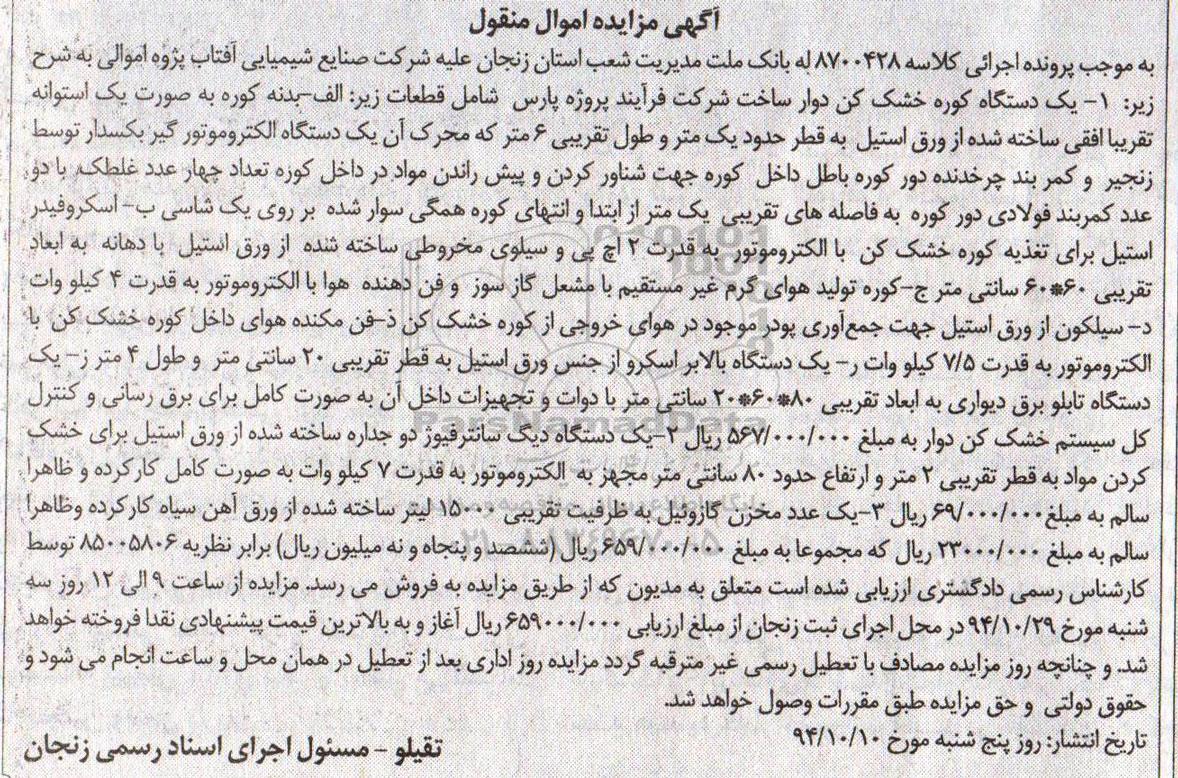 آگهی مزایده اموال منقول
به موجب پرونده اجرائی کلاسه ۸۷۰۰۴۲۸ له بانک ملت مدیریت شعب استان زنجان علیه شرکت صنایع شیمیایی آفتاب پژوه اموالی به شرح
زیر: ۱- یک دستگاه کوره خشک کن دوار ساخت شرکت فرآیند پروژه پارس شامل قطعات زیر: الف-بدنه کوره به صورت یک استوانه
تقریبا افقی ساخته شده از ورق استیل به قطر حدود یک متر و طول تقریبی ۶ متر که محرک آن یک دستگاه الکتروموتور گیر بکسدار توسط
زنجیر و کمر بند چرخدنده دور کوره باطل داخل کوره جهت شناور کردن و پیش راندن مواد در داخل کوزه تعداد چهار عدد غلطک با دو
عدد کمربند فولادی دور کوره به فاصله های تقریبی یک متر از ابتدا و انتهای کوره همگی سوار شده بر روی یک شاسی ب- اسکروفیدر
استیل برای تغذیه کوره خشک کن با الکتروموتور به قدرت ۲ اچ پی و سیلوی مخروطی ساخته شده از ورق استیل با دهانه به ابعاد
تقریبی ۶۰*۶۰ سانتی متر ج-کوره تولید هوای گرم غیر مستقیم با مشعل گاز سوز و فن دهنده هوا با الکتروموتور به قدرت ۴ کیلو وات
د- سیلکون از ورق استیل جهت جمع‌آوری پودر موجود در هوای خروجی از کوره خشک کن ذ-فن مکنده هوای داخل کوره خشک کن با
الکتروموتور به قدرت ۷/۵ کیلو وات ر- یک دستگاه بالابر اسکرو از جنس ورق استیل به قطر تقریبی ۲۰ سانتی متر و طول ۴ متر ز- یک
دستگاه تابلو برق دیواری به ابعاد تقریبی ۸۰*۶۰*۲۰ سانتی متر با دوات و تجهیزات داخل آن به صورت کامل برای برق رسانی و کنترل
کل سیستم خشک کن دوار به مبلغ ۵۶۷/۰۰۰/۰۰۰ ریال ۲-یک دستگاه دیگ سانترفیوژ دو جداره ساخته شده از ورق استیل برای خشک
کردن مواد به قطر تقریبی ۲ متر و ارتفاع حدود ۸۰ سانتی متر مجهز به الکتروموتور به قدرت ۷ کیلو وات به صورت کامل کارکرده و ظاهرا
سالم به مبلغ۶۹/۰۰۰/۰۰۰ ریال ۳-یک عدد مخزن گازوئیل به ظرفیت تقریبی ۱۵۰۰۰ لیتر ساخته شده از ورق آهن سیاه کارکرده وظاهرا
سالم به مبلغ ۲۳۰۰۰/۰۰۰ ریال که مجموعا به مبلغ ۶۵۹/۰۰۰/۰۰۰ ریال (ششصد و پنجاه و نه میلیون ریال) برابر نظریه ۸۵۰۰۵۸۰۶ توسط
کارشناس رسمی دادگستری ارزیابی شده است متعلق به مدیون که از طریق مزایده به فروش می رسد. مزایده از ساعت ۹ الی ۱۲ روز سه
شنبه مورخ ۹۴/۱۰/۲۹ در محل اجرای ثبت زنجان از مبلغ ارزیابی ۶۵۹۰۰۰/۰۰۰ ریال آغاز و به بالاترین قیمت پیشنهادی نقدا فروخته خواهد
شد. و چنانچه روز مزایده مصادف با تعطیل رسمی غیر مترقبه گردد مزایده روز اداری بعد از تعطیل در همان محل و ساعت انجام می شود و
حقوق دولتی و حق مزایده طبق مقررات وصول خواهد شد.
تاریخ انتشار: روز پنج شنبه مورخ ۹۴/۱۰/۱۰
تقیلو - مسئول اجرای اسناد رسمی زنجان
ParsNamadData